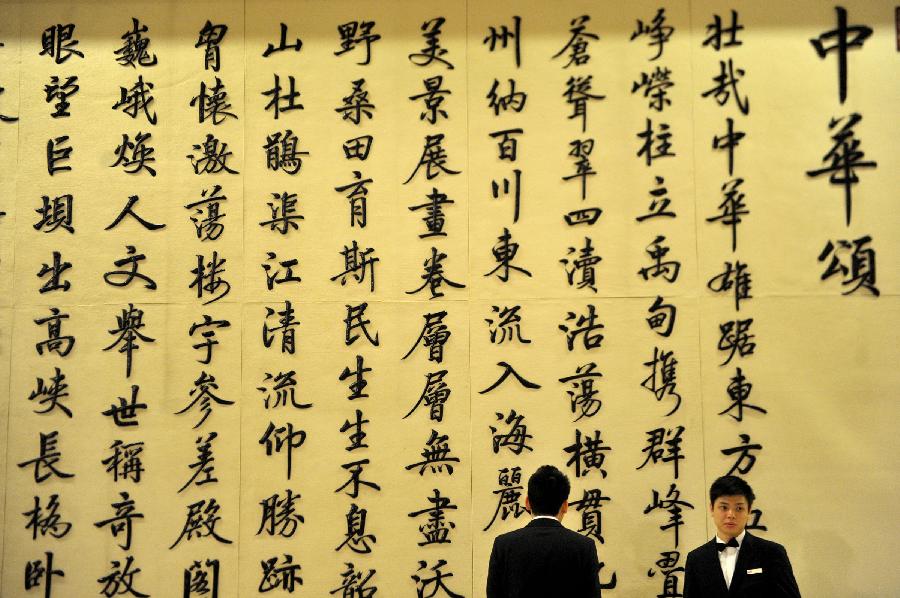 中華頌
壯哉中華雄踞東方五
峥嶸柱立禹甸携群峰疊
蒼聳翠四瀆浩蕩橫貫九
州納百川東流入海麗
美景展畫卷層層無盡沃
野桑田育斯民生生不息韶
山杜鵑渠江清流仰勝跡
胷懷激蕩楼宇參差殿閣
巍峨焕人文舉世稱奇放
眼望巨坝出高峡長橋卧